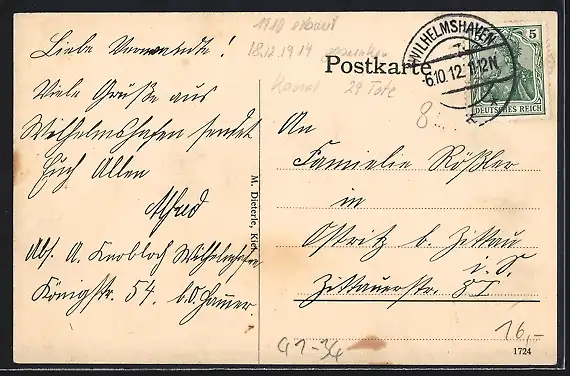 Liebe Verwandte!
Viele Grüße aus
Wilhelmshafen sendet
Euch Allen
Alfred
Abs. A. Knobloch Wilhelmshafen
Königstr. 54. b. Hammer.
M. Dieterle, Kiel
1910 erbaut
18.12.1914
Kanal 29 Tote
Postkarte
WILHELMSHAVEN
6.10.12.11-12N
5
DEUTSCHES REICH
8
An
Familie Rößler
in
Ostritz b. Zittau
i. S.
Zittauerstr.
G1-34
16,-
1724